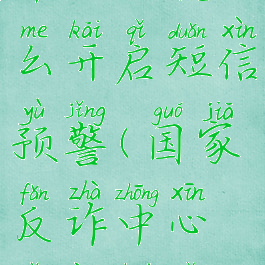 me kāi qǐ duǎn xìn
么开启短信
yù jǐng guó jiā
预警(国家
fǎn zhà zhōng xīn
反诈中心